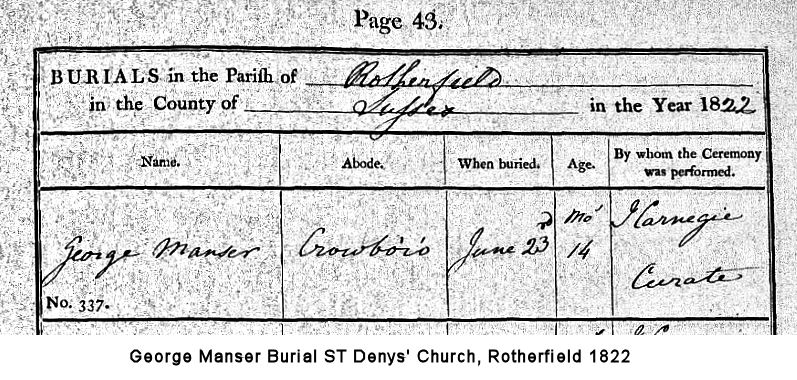 Page 43.
BURIALS in the Pariſh of Rotherfield
in the County of Suſsex in the Year 1822
Name. Abode. When buried. Age. By whom the Ceremony
was performed.
George Manser Crowboro' June 23d Mo' 14 J Carnegie
Curate
No. 337.
George Manser Burial ST Denys' Church, Rotherfield 1822